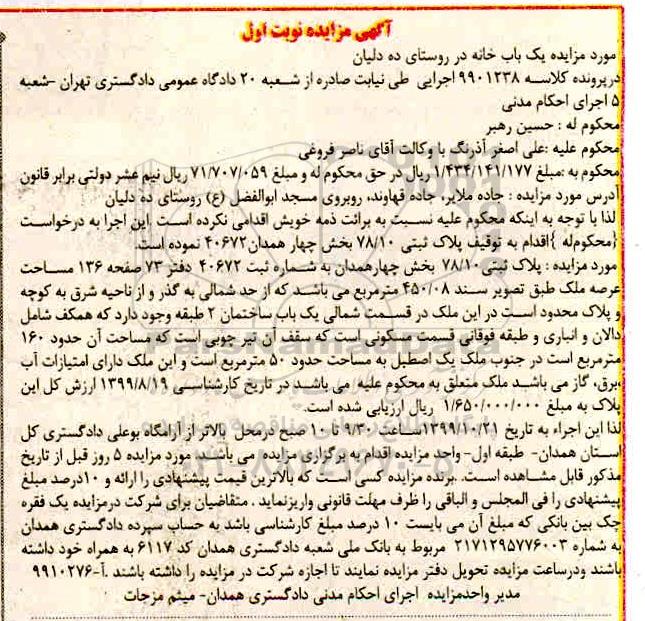 آگهی مزایده نوبت اول
مورد مزایده یک باب خانه در روستای ده دلیان
درپرونده کلاسه ۹۹۰۱۲۳۸ اجرایی طی نیابت صادره از شعبه ۲۰ دادگاه عمومی دادگستری تهران –شعبه
۵ اجرای احکام مدنی
محکوم له : حسین رهبر
محکوم علیه :علی اصغر آذرنگ با وکالت آقای ناصر فروغی
محکوم به :مبلغ ۱/۴۳۴/۱۴۱/۱۷۷ ریال در حق محکوم له و مبلغ ۷۱/۷۰۷/۰۵۹ ریال نیم عشر دولتی برابر قانون
آدرس مورد مزایده : جاده ملایر، جاده قهاوند، روبروی مسجد ابوالفضل (ع) روستای ده دلیان
لذا با توجه به اینکه محکوم علیه نسبت به برائت ذمه خویش اقدامی نکرده است .این اجرا به درخواست
{محکوم‌له }اقدام به توقیف پلاک ثبتی ۷۸/۱۰ بخش چهار همدان۴۰۶۷۲ نموده است.
مورد مزایده : پلاک ثبتی۷۸/۱۰ بخش چهارهمدان به شماره ثبت ۴۰۶۷۲ دفتر ۷۳ صفحه ۱۳۶ مساحت
عرصه ملک طبق تصویر سند ۴۵۰/۰۸ مترمربع می باشد که از حد شمالی به گذر و از ناحیه شرق به کوچه
و پلاک محدود است در این ملک در قسمت شمالی یک باب ساختمان ۲ طبقه وجود دارد که همکف شامل
دالان و انباری و طبقه فوقانی قسمت مسکونی است که سقف آن تیر چوبی است که مساحت آن حدود ۱۶۰
مترمربع است در جنوب ملک یک اصطبل به مساحت حدود ۵۰ مترمربع است و این ملک دارای امتیازات آب
،برق، گاز می باشد ملک متعلق به محکوم علیه می باشد در تاریخ کارشناسی ۱۳۹۹/۸/۱۹ ارزش کل این
پلاک به مبلغ ۱/۶۵۰/۰۰۰/۰۰۰ ریال ارزیابی شده است.
لذا این اجراء به تاریخ ۱۳۹۹/۱۰/۲۱ساعت ۹/۳۰ تا ۱۰ صبح درمحل بالاتر از آرامگاه بوعلی دادگستری کل
استان همدان- طبقه اول- واحد مزایده اقدام به برگزاری مزایده می باشد. مورد مزایده ۵ روز قبل از تاریخ
مذکور قابل مشاهده است. .برنده مزایده کسی است که بالاترین قیمت پیشنهادی را ارائه و ۱۰درصد مبلغ
پیشنهادی را فی المجلس و الباقی را ظرف مهلت قانونی واریزنماید . متقاضیان برای شرکت درمزایده یک فقره
چک بین بانکی که مبلغ آن می بایست ۱۰ درصد مبلغ کارشناسی باشد به حساب سپرده دادگستری همدان
به شماره ۲۱۷۱۲۹۵۷۷۶۰۰۳ مربوط به بانک ملی شعبه دادگستری همدان کد ۶۱۱۷ به همراه خود داشته
باشند ودرساعت مزایده تحویل دفتر مزایده نمایند تا اجازه شرکت در مزایده را داشته باشند .آ-۹۹۱۰۲۷۶
مدیر واحدمزایده اجرای احکام مدنی دادگستری همدان- میثم مزجات